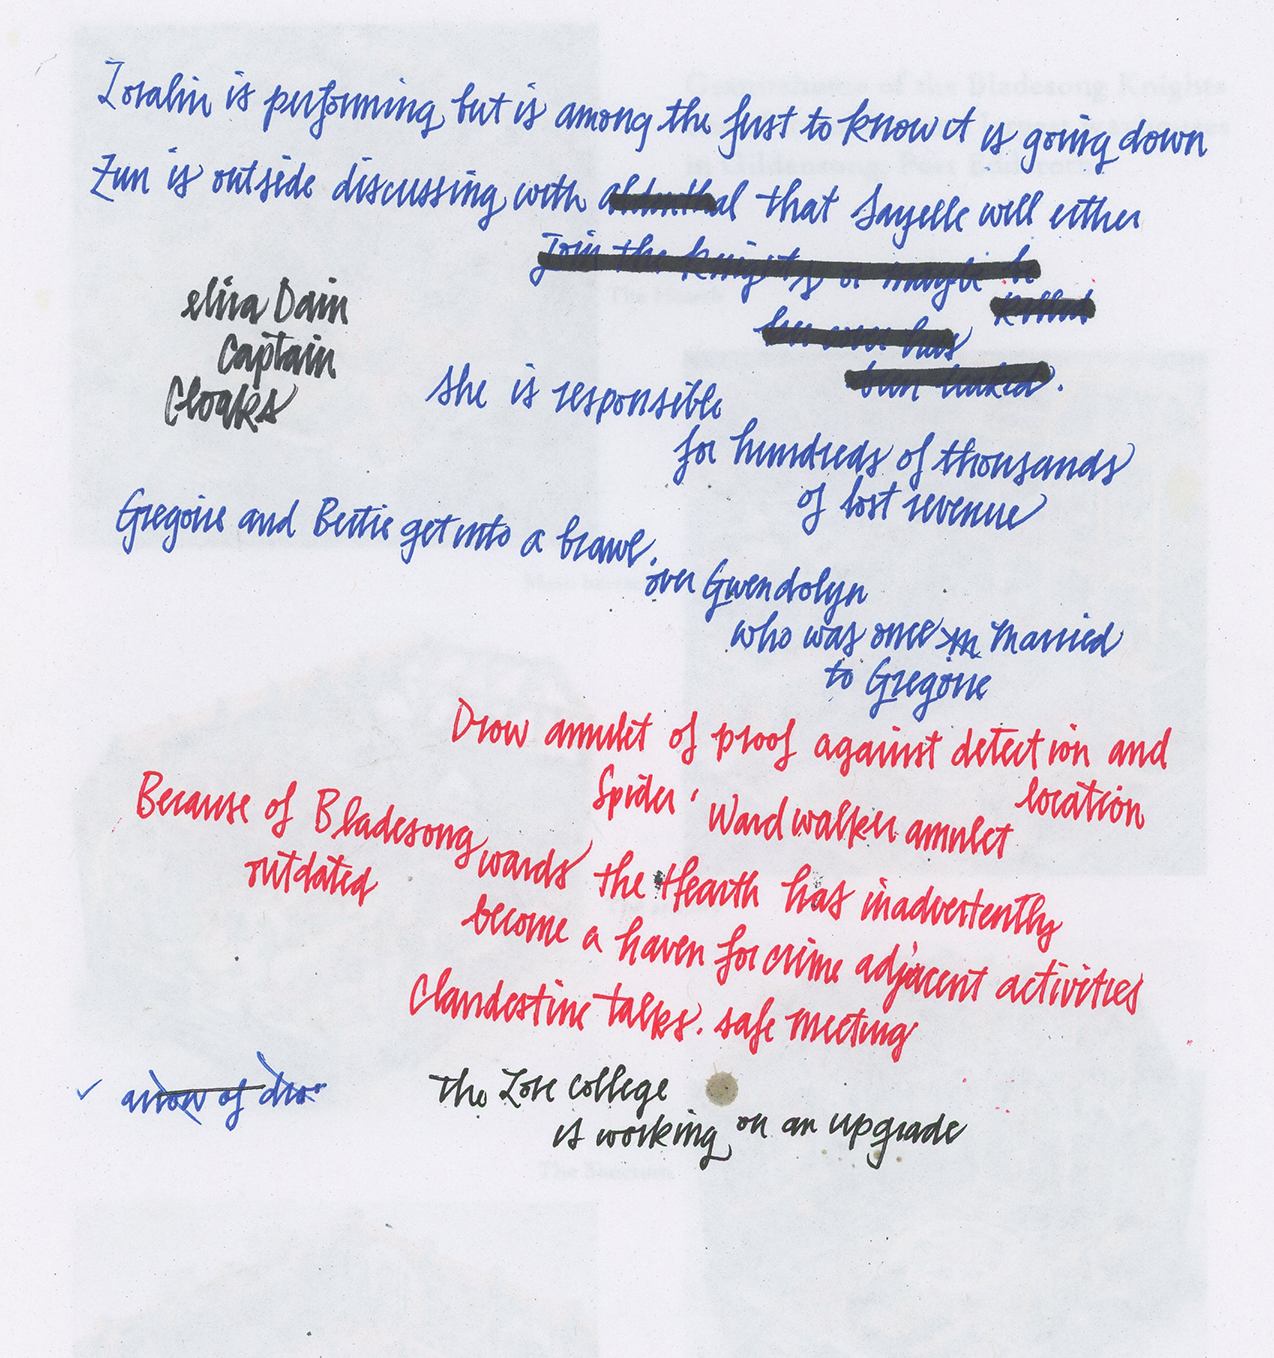 Loralin is performing but is among the first to know it is going down
Zun is outside discussing with that Sayelle will either
join the knights or maybe be
killed
her cover has
been leaked.
Elira Dain
Captain
Cloaks
She is responsible
for hundreds of thousands
of lost revenue
Gregoire and Bertie get into a brawl.
over Gwendolyn
who was once m married
to Gregoire
Drow amulet of proof against detection and
location
Spider' Ward walker amulet
Because of Bladesong wards the Hearth has inadvertently
outdated
become a haven for crime adjacent activities
Clandestine talks. safe meeting
arrow of
The Lore College
is working on an upgrade
The Hearth
The Sanctum